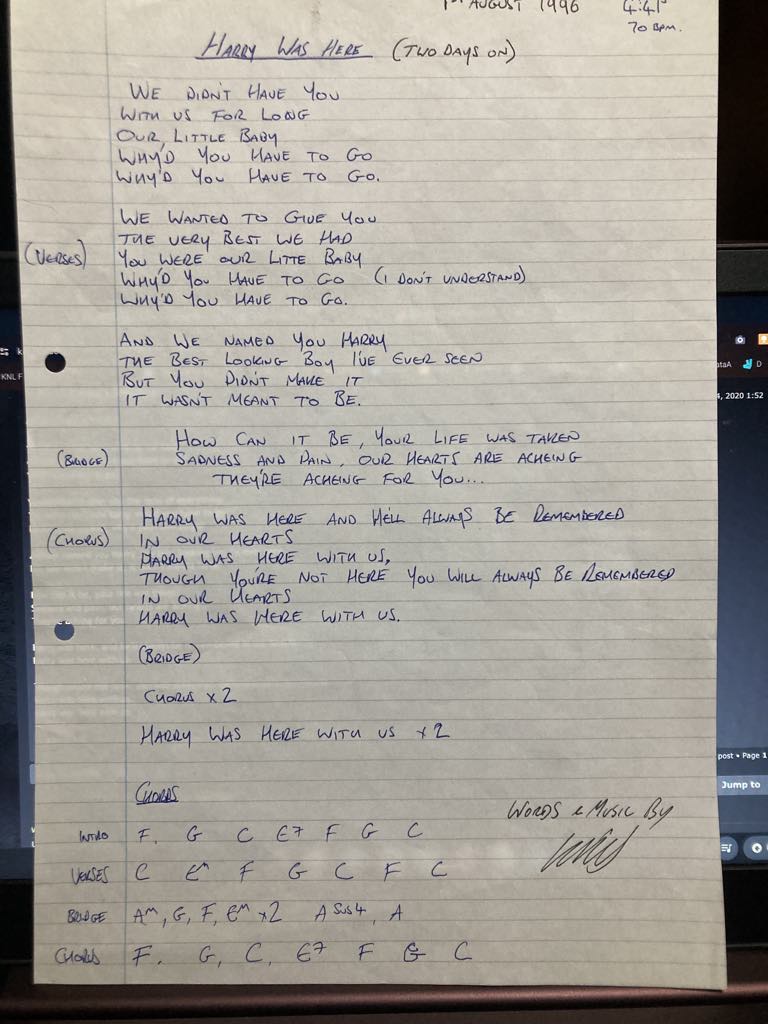 1ST AUGUST 1996
4:41
70 BPM.
HARRY WAS HERE (TWO DAYS ON)
WE DIDN'T HAVE YOU
WITH US FOR LONG
OUR, LITTLE BABY
WHY'D YOU HAVE TO GO
WHY'D YOU HAVE TO GO.
WE WANTED TO GIVE YOU
THE VERY BEST WE HAD
(VERSES) YOU WERE OUR LITTE BABY
WHY'D YOU HAVE TO GO (I DON'T UNDERSTAND)
WHY'D YOU HAVE TO GO.
AND WE NAMED YOU HARRY
THE BEST LOOKING BOY I'VE EVER SEEN
BUT YOU DIDN'T MAKE IT
IT WASN'T MEANT TO BE.
HOW CAN IT BE, YOUR LIFE WAS TAKEN
(BRIDGE) SADNESS AND PAIN, OUR HEARTS ARE ACHEING
THEY'RE ACHEING FOR YOU...
HARRY WAS HERE AND HE'LL ALWAYS BE REMEMBERED
(CHORUS) IN OUR HEARTS
HARRY WAS HERE WITH US,
THOUGH YOU'RE NOT HERE YOU WILL ALWAYS BE REMEMBERED
IN OUR HEARTS
HARRY WAS HERE WITH US.
(BRIDGE)
CHORUS x2
HARRY WAS HERE WITH US x2
CHORDS
WORDS & MUSIC BY
INTRO F. G C E7 F G C
VERSES C Em F G C F C
BRIDGE Am, G, F, Em x2 A Sus4, A
CHORUS F. G, C, E7 F G C
KNL F
ataA
D
4, 2020 1:52
post • Page 1
Jump to